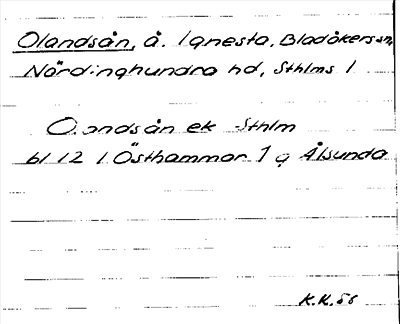 Olandsån, å. Ignesta, Bladåkers sn,
Närdinghundra hd, Sthlms l
Olandsån ek Sthlm
bl 12 l Östhammar 1 g Ålsunda
K.K. 56